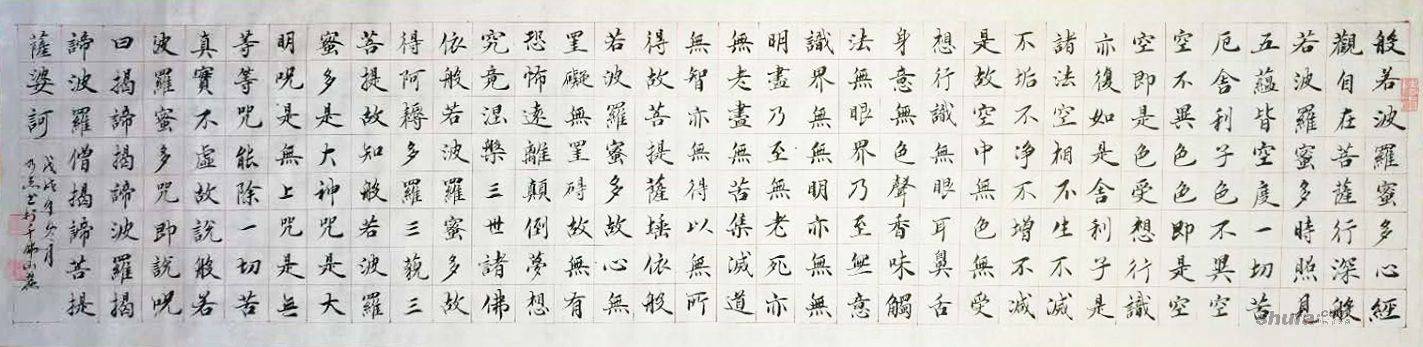 般若波羅蜜多心經
觀自在菩薩行深般
若波羅蜜多時照見
五蘊皆空度一切苦
厄舍利子色不異空
空不異色色即是空
空即是色受想行識
亦復如是舍利子是
諸法空相不生不滅
不垢不净不增不减
是故空中無色無受
想行識無眼耳鼻舌
身意無色聲香味觸
法無眼界乃至無意
識界無無明亦無無
明盡乃至無老死亦
無老盡無苦集滅道
無智亦無得以無所
得故菩提薩埵依般
若波羅蜜多故心無
罣礙無罣碍故無有
恐怖遠離顛倒夢想
究竟涅槃三世諸佛
依般若波羅蜜多故
得阿耨多羅三藐三
菩提故知般若波羅
蜜多是大神咒是大
明咒是無上咒是無
等等咒能除一切苦
真實不虛故說般若
波羅蜜多咒即說呪
曰揭諦揭諦波羅揭
諦波羅僧揭諦菩提
薩婆訶
戊戌年月
書於千佛山麓